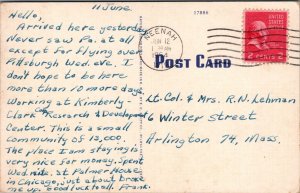 11 June
Hello,
Arrived here yesterday.
Never saw Pa. at all
except for flying over
Pittsburgh Wed. eve. I
don't hope to be here
more than 10 more days.
Working at Kimberly-
Clark Research & Development
Center. This is a small
community of 13,000.
The place I am staying is
very nice for money. Spent
Wed. nite. at Palmer House
in Chicago, just about broke
me up. Good luck to all. Frank.
17886
NEENAH
JUN 12
POST CARD
UNITED STATES POSTAGE
2 CENTS 2
Lt. Col. & Mrs. R.N. Lehman
6 Winter Street
Arlington 74, Mass.